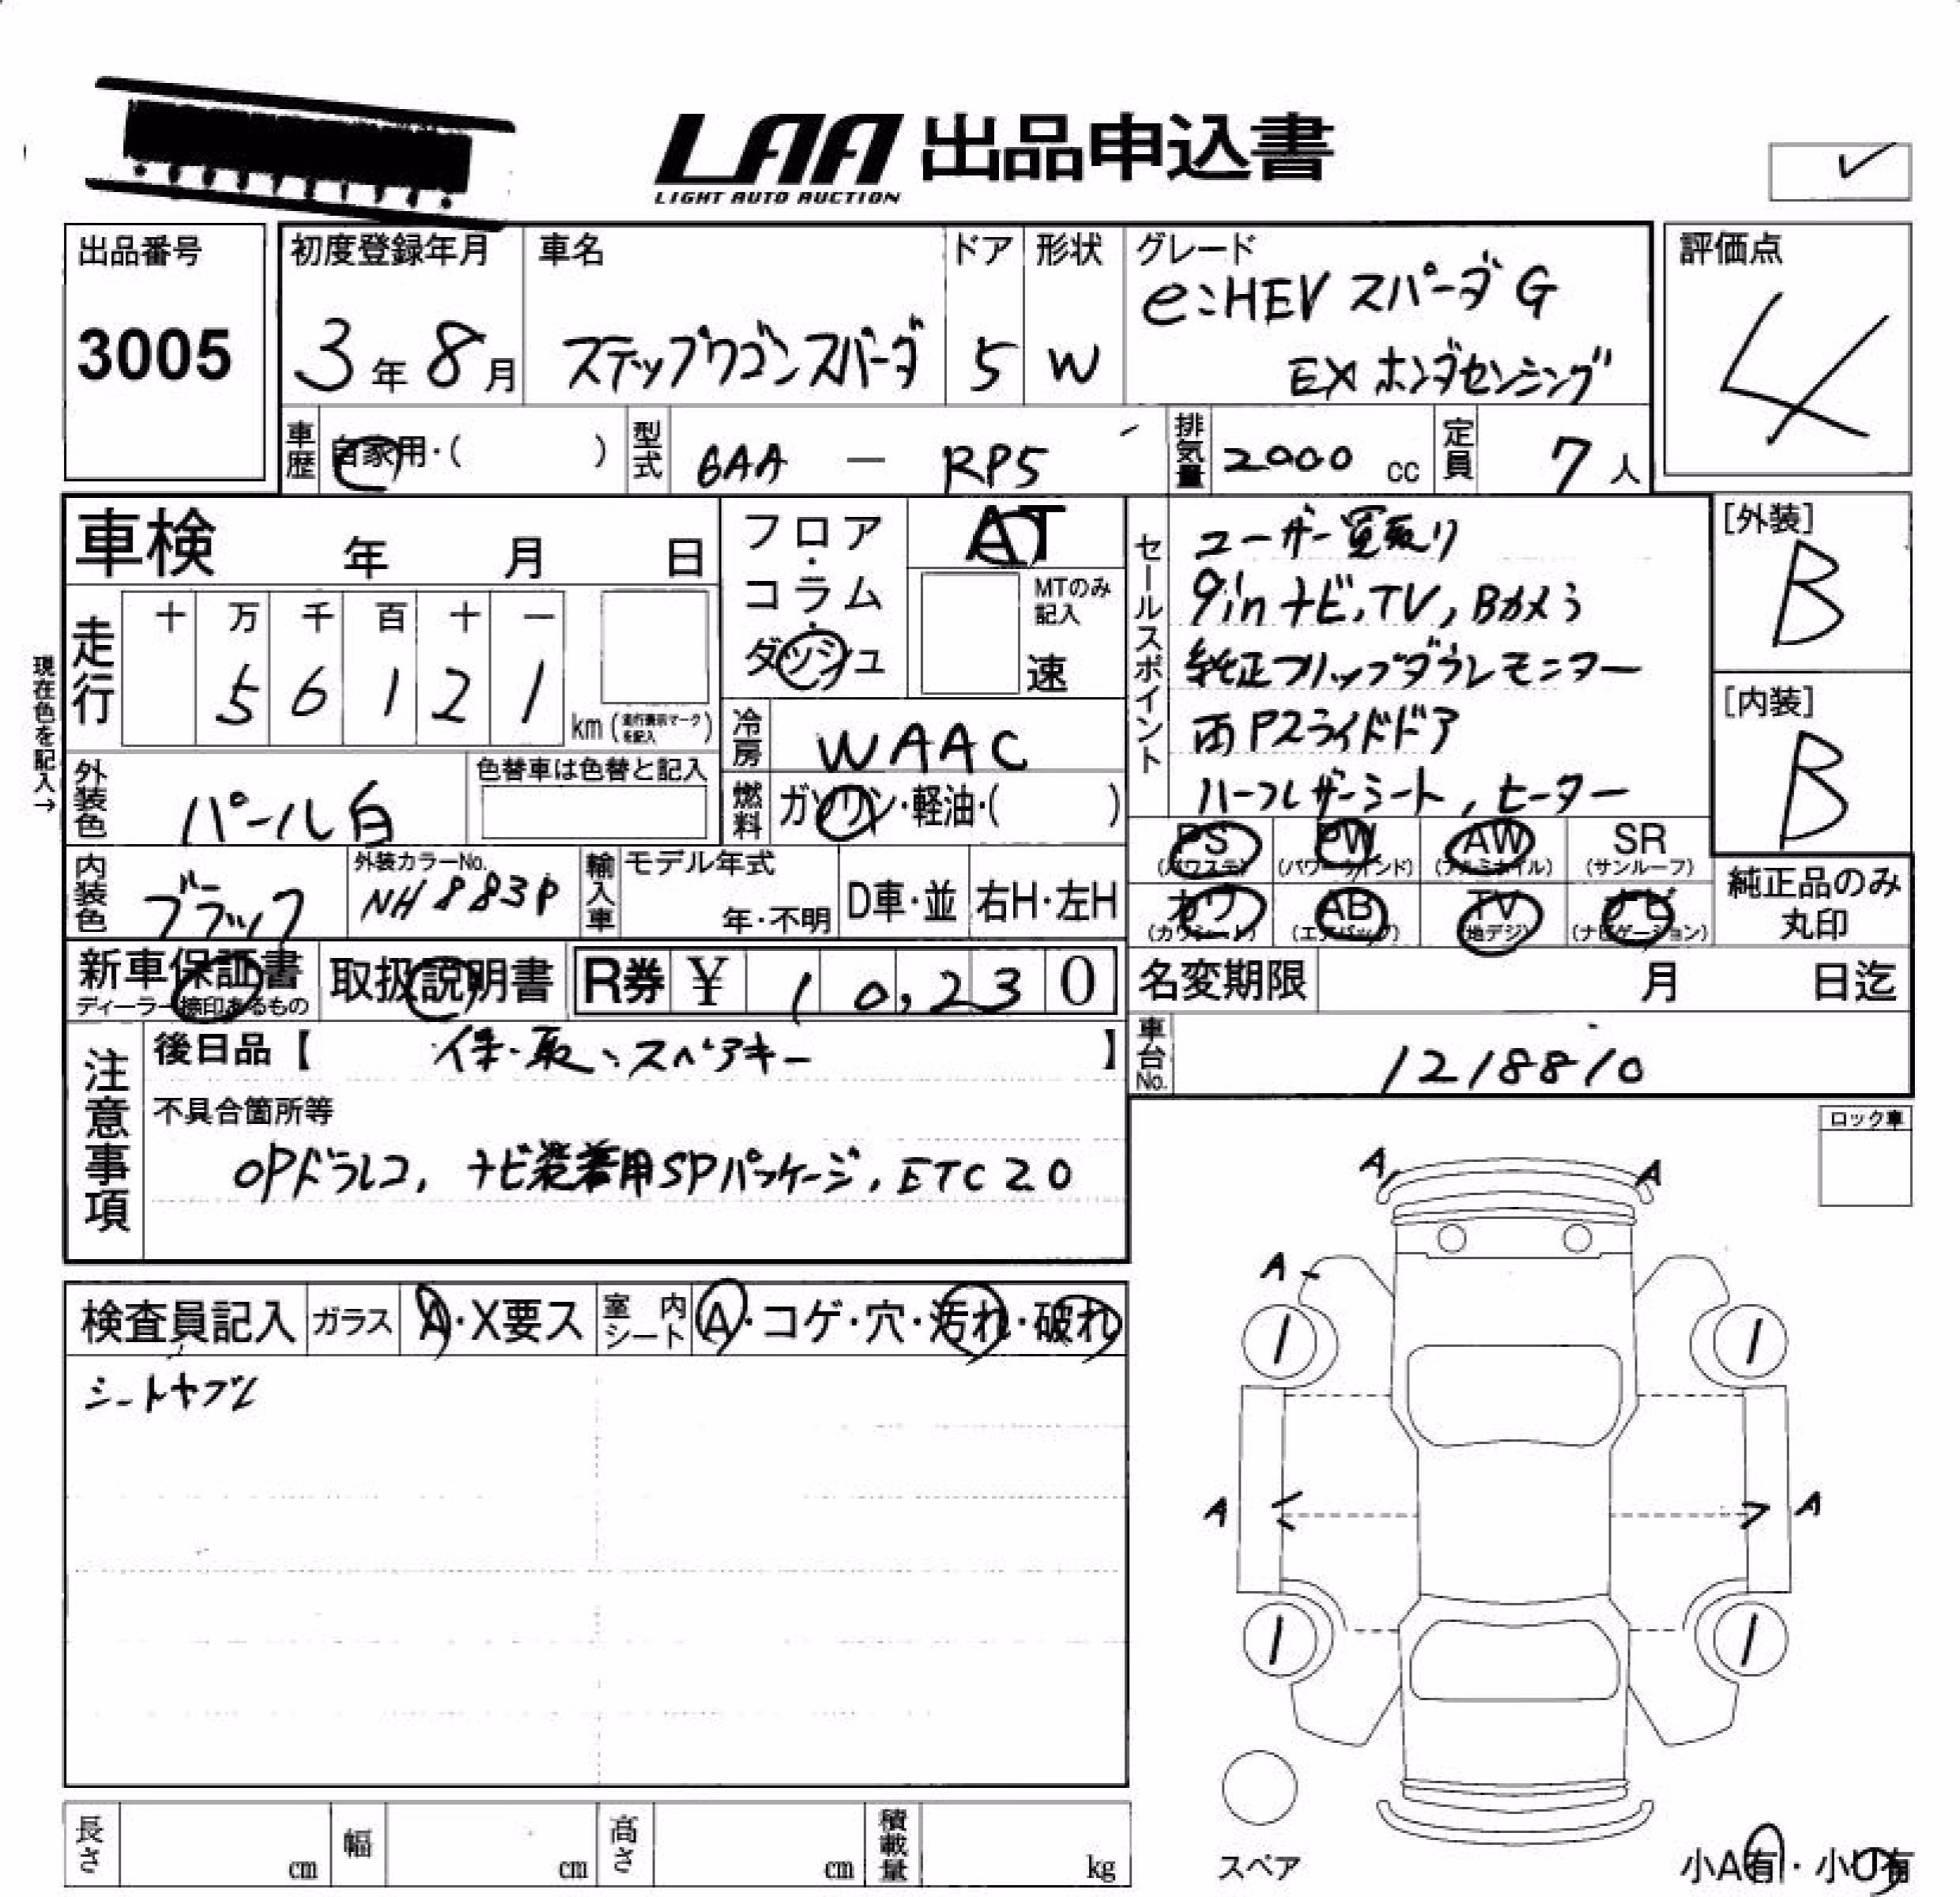 LAA 出品申込書
LIGHT AUTO AUCTION
✓
出品番号
3005
初度登録年月
3年 8月
車名
ステップワゴンスパーダ
ドア
5
形状
W
グレード
e:HEV スパーダ G
EX ホンダセンシング
評価点
4
車歴
自家用・( )
型式
6AA - RP5
排気量
2000 cc
定員
7人
車検 年 月 日
走行
十 万 千 百 十 一
5 6 1 2 1
km (走行表示マークを記入)
現在色を記入→
外装色
パール白
色替車は色替と記入
内装色
ブラック
外装カラーNo.
NH883P
フロア・コラム・ダッシュ
AT
MTのみ記入
速
冷房
WAAC
燃料
ガソリン・軽油・( )
輸入車
モデル年式
年・不明
D車・並
右H・左H
セールスポイント
ユーザー買取り
9inナビ,TV,Bカメラ
純正フリップダウンモニター
両Pスライドドア
ハーフレザーシート,ヒーター
[外装]
B
[内装]
B
PS (パワステ)
PW (パワーウインド)
AW (アルミホイル)
SR (サンルーフ)
カワ (カワシート)
AB (エアバッグ)
TV (地デジ)
ナビ (ナビゲーション)
純正品のみ
丸印
新車保証書
ディーラー捺印あるもの
取扱説明書
R券 ¥ 10,230
名変期限 月 日迄
注意事項
後日品【 保・取、スペアキー 】
不具合箇所等
OPドラレコ, ナビ装着用SPパッケージ, ETC20
車台No.
1218810
ロック車
検査員記入
ガラス
A・X要ス
室内シート
A・コゲ・穴・汚れ・破れ
シートヤブレ
A A
A
A A
スペア
小A有・小U有
長さ cm
幅 cm
高さ cm
積載量 kg